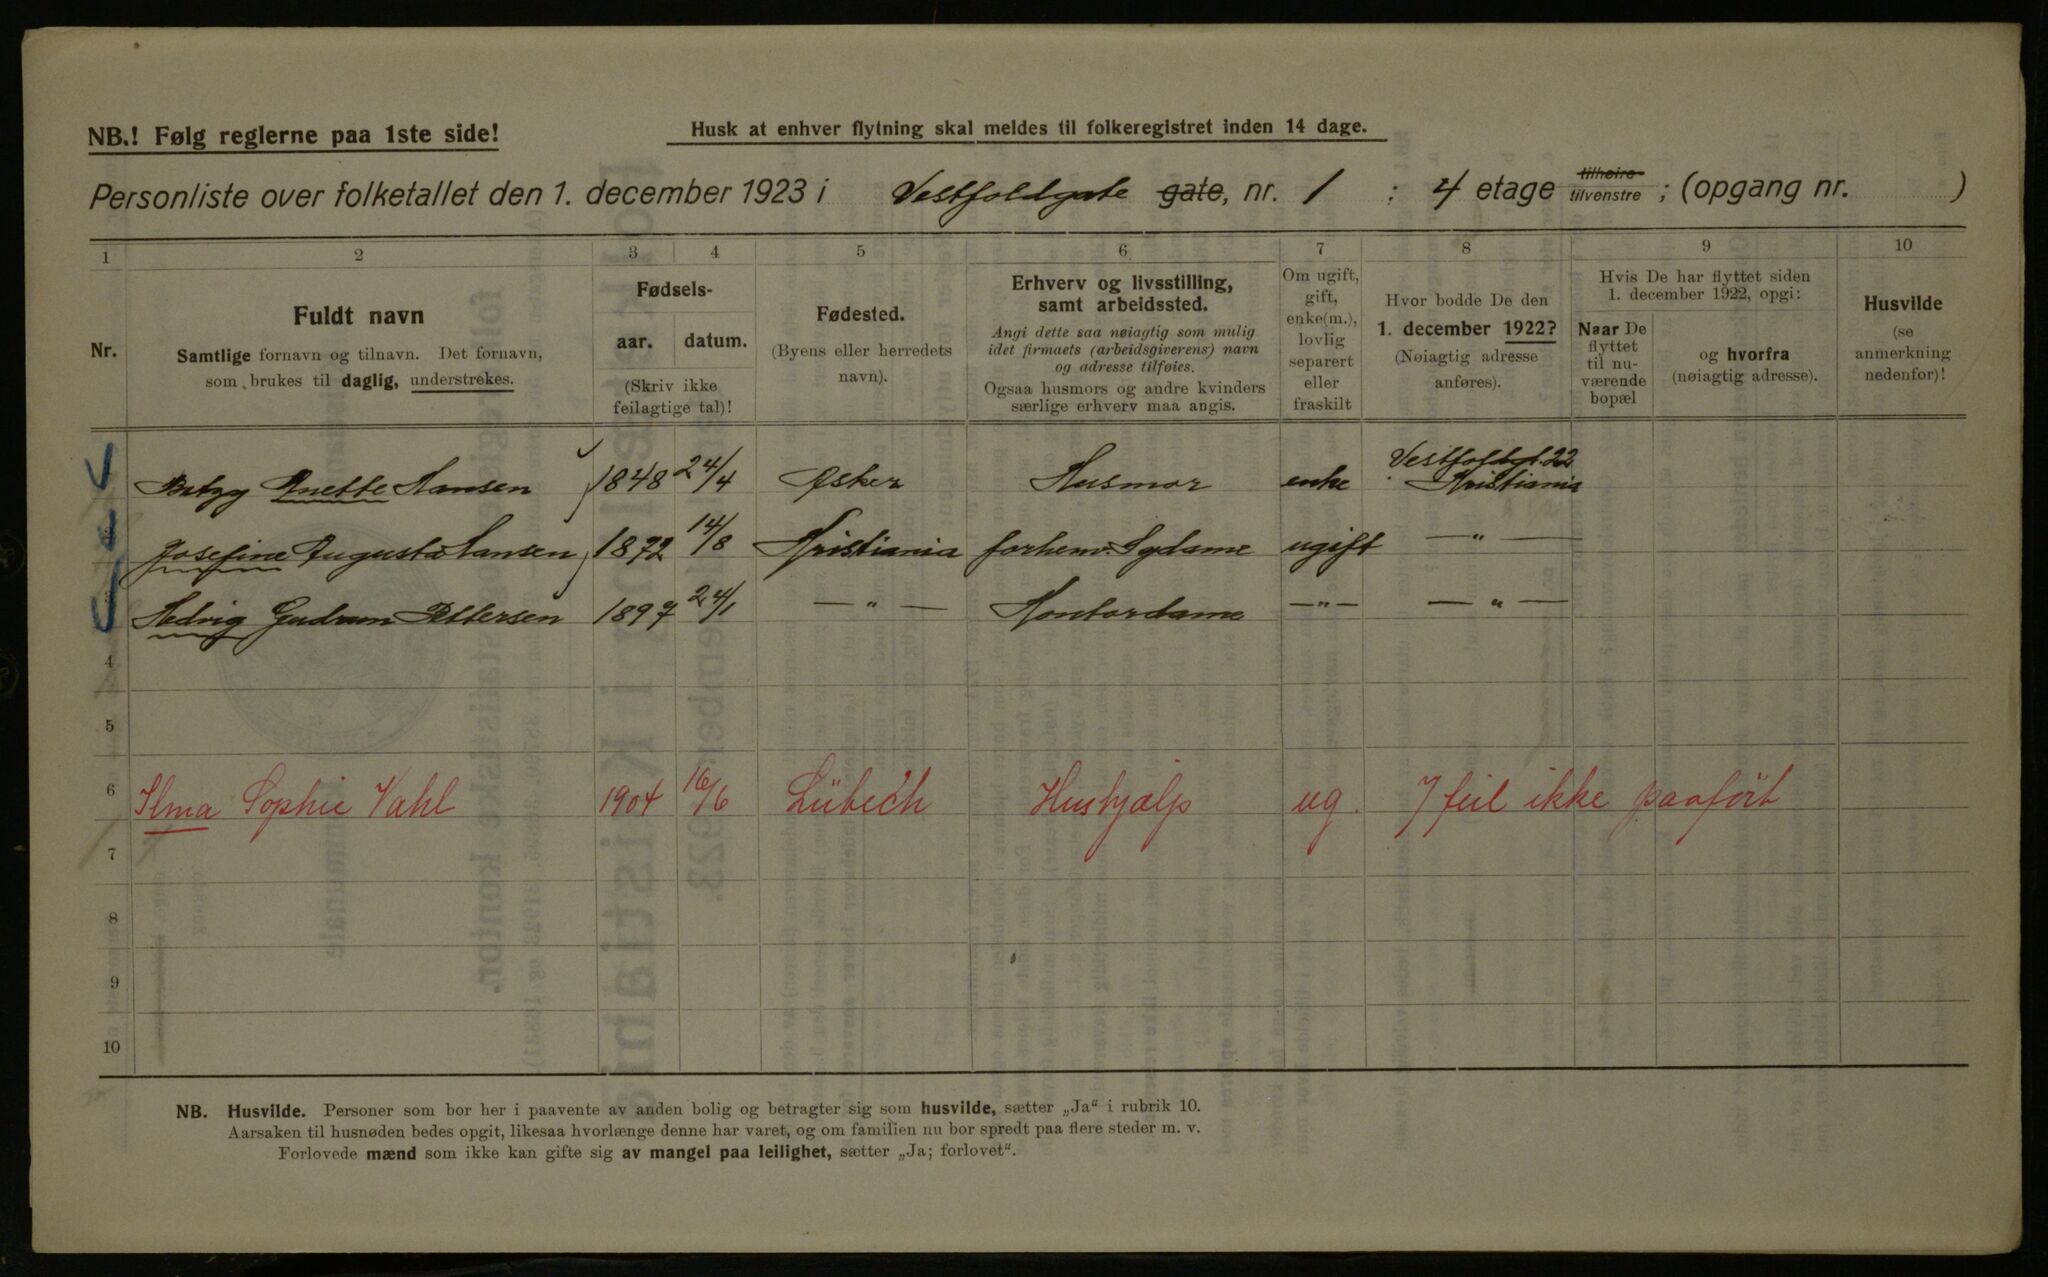 NB.! Følg reglerne paa 1ste side!
Husk at enhver flytning skal meldes til folkeregistret inden 14 dage.
Personliste over folketallet den 1. december 1923 i Vestfoldgate gate, nr. 1 : 4 etage tilhøire tilvenstre ; (opgang nr. )
1 2 3 4 5 6 7 8 9 10
Nr.
Fuldt navn
Samtlige fornavn og tilnavn. Det fornavn,
som brukes til daglig, understrekes.
Fødsels-
aar. datum.
(Skriv ikke
feilagtige tal)!
Fødested.
(Byens eller herredets
navn).
Erhverv og livsstilling,
samt arbeidssted.
Angi dette saa nøiagtig som mulig
idet firmaets (arbeidsgiverens) navn
og adresse tilføies.
Ogsaa husmors og andre kvinders
særlige erhverv maa angis.
Om ugift,
gift,
enke(m.),
lovlig
separert
eller
fraskilt
Hvor bodde De den
1. december 1922?
(Nøiagtig adresse
anføres).
Hvis De har flyttet siden
1. december 1922, opgi:
Naar De
flyttet
til nu-
værende
bopæl
og hvorfra
(nøiagtig adresse).
Husvilde
(se
anmerkning
nedenfor)!
Betzy Anette Hansen 1848 24/4 Asker Husmor enke Vestfoldgt. 22 Kristiania
Josefine Augusta Hansen 1872 14/8 Kristiania forhenv. Sydame ugift — " —
Hedvig Gudrun Pettersen 1897 24/1 — " — Kontordame — " — — " —
4
5
6 Ilma Sophie Vahl 1904 16/6 Lübeck Hushjælp ug. I feil ikke paaført
7
8
9
10
NB. Husvilde. Personer som bor her i paavente av anden bolig og betragter sig som husvilde, sætter „Ja“ i rubrik 10.
Aarsaken til husnøden bedes opgit, likesaa hvorlænge denne har varet, og om familien nu bor spredt paa flere steder m. v.
Forlovede mænd som ikke kan gifte sig av mangel paa leilighet, sætter „Ja; forlovet“.